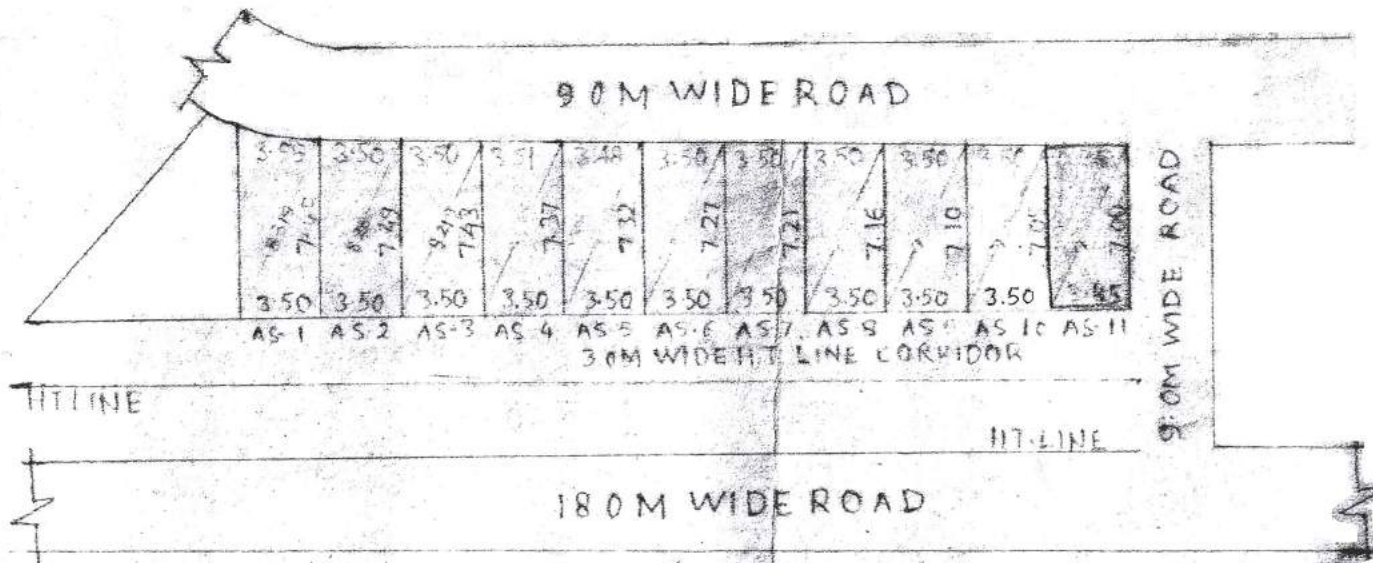 90M WIDE ROAD
3.50 3.50 3.51 3.48 3.50 3.50 3.50 3.50
7.40 7.49 7.43 7.37 7.32 7.27 7.21 7.16 7.10 7.00
3.50 3.50 3.50 3.50 3.50 3.50 3.50 3.50 3.50 3.50
AS-1 AS-2 AS-3 AS-4 AS-5 AS-6 AS-7 AS-8 AS-9 AS-10 AS-11
9.0M WIDE ROAD
30M WIDE H.T LINE CORRIDOR
HT LINE
HT-LINE
180M WIDE ROAD